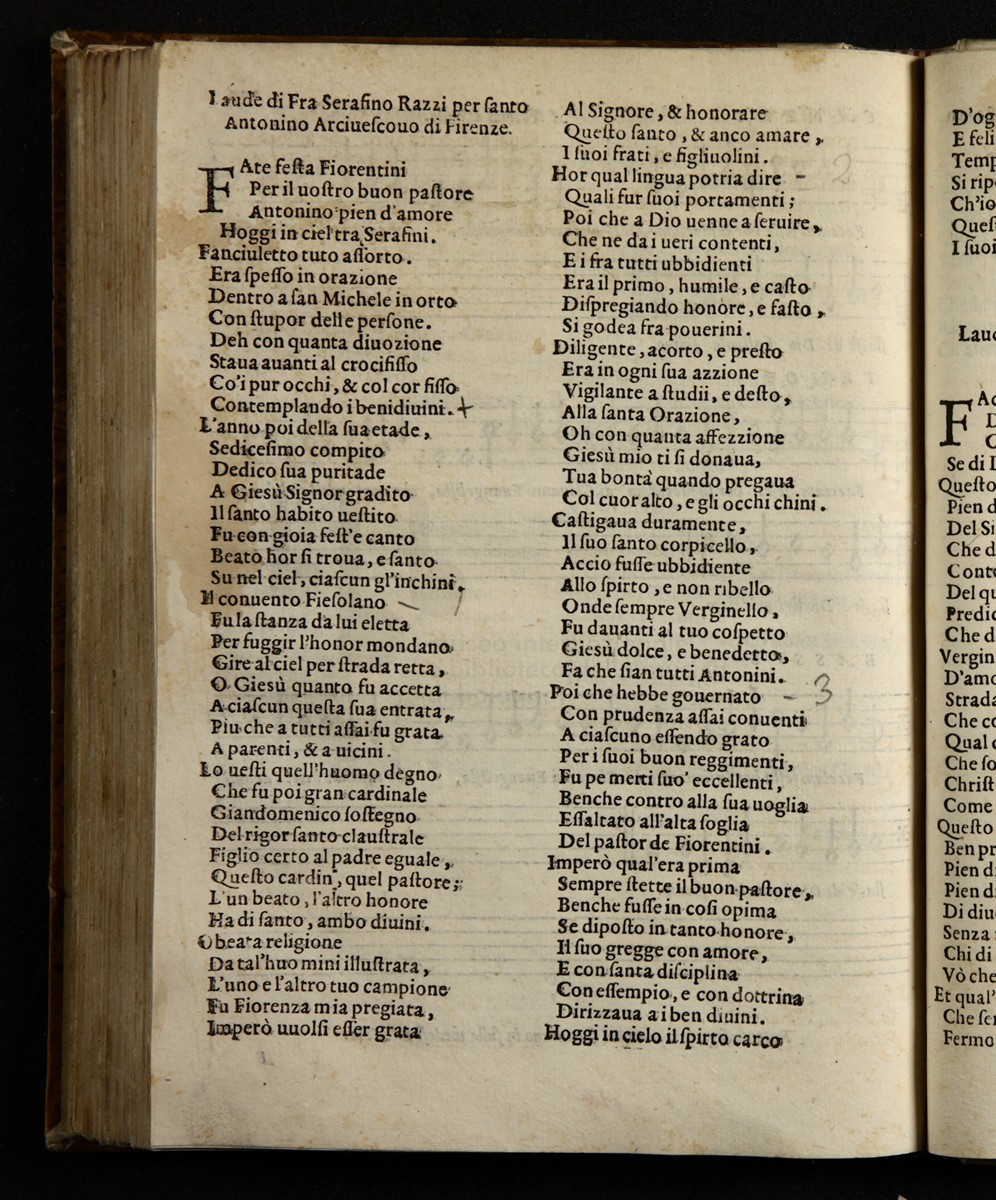 Laude di Fra Serafino Razzi per ſanto
Antonino Arciueſcouo di Firenze.
FAte feſta Fiorentini
Per il uoſtro buon paſtore
Antonino pien d'amore
Hoggi in ciel tra Serafini.
Fanciuletto tuto aſſorto.
Era ſpeſſo in orazione
Dentro a ſan Michele in orto
Con ſtupor delle perſone.
Deh con quanta diuozione
Staua auanti al crocifiſſo
Co'i pur occhi, & col cor fiſſo
Contemplando i beni diuini. +
L'anno poi della ſua etade,
Sediceſimo compito
Dedico ſua puritade
A Gieſù Signor gradito
Il ſanto habito ueſtito
Fu con gioia feſt'e canto
Beato hor ſi troua, e ſanto
Su nel ciel, ciaſcun gl'inchini,
Il conuento Fieſolano
Fu la ſtanza da lui eletta
Per fuggir l'honor mondano
Gire al ciel per ſtrada retta,
O Gieſù quanto fu accetta
A ciaſcun queſta ſua entrata,
Piu che a tutti aſſai fu grata
A parenti, & a uicini.
Lo ueſti quell'huomo degno
Che fu poi gran cardinale
Giandomenico ſoſtegno
Del rigor ſanto clauſtrale
Figlio certo al padre eguale,
Queſto cardin', quel paſtore;
L'un beato, l'altro honore
Ha di ſanto, ambo diuini.
O beata religione
Da tal'huo mini illuſtrata,
L'uno e l'altro tuo campione
Fu Fiorenza mia pregiata,
Imperò uuolſi eſſer grata
Al Signore, & honorare
Queſto ſanto, & anco amare,
I ſuoi frati, e figliuolini.
2
Hor qual lingua potria dire -
Quali fur ſuoi portamenti;
Poi che a Dio uenne a ſeruire,
Che ne da i ueri contenti,
E i fra tutti ubbidienti
Era il primo, humile, e caſto
Diſpregiando honore, e faſto,
Si godea fra pouerini.
Diligente, acorto, e preſto
Era in ogni ſua azzione
Vigilante a ſtudii, e deſto,
Alla ſanta Orazione,
Oh con quanta affezzione
Gieſù mio ti ſi donaua,
Tua bontà quando pregaua
Col cuor alto, e gli occhi chini.
Caſtigaua duramente,
Il ſuo ſanto corpicello,
Accio fuſſe ubbidiente
Allo ſpirto, e non ribello
Onde ſempre Verginello,
Fu dauanti al tuo coſpetto
Gieſù dolce, e benedetto,
Fa che ſian tutti Antonini.
Poi che hebbe gouernato - 3
Con prudenza aſſai conuenti
A ciaſcuno eſſendo grato
Per i ſuoi buon reggimenti,
Fu pe merti ſuo' eccellenti,
Benche contro alla ſua uoglia
Eſſaltato all'alta ſoglia
Del paſtor de Fiorentini.
Imperò qual'era prima
Sempre ſtette il buon paſtore,
Benche fuſſe in coſi opima
Se dipoſto in tanto honore,
Il ſuo gregge con amore,
E con ſanta diſciplina
Con eſſempio, e con dottrina
Dirizzaua a i ben diuini.
Hoggi in cielo il ſpirto carco
D'og
E feli
Temp
Si rip
Ch'io
Queſ
I ſuoi
Laud
F
D
Se di
Queſto
Pien d
Del Si
Che d
Conte
Del qu
Predic
Che d
Vergin
D'amo
Strada
Che co
Qual c
Che ſo
Chriſt
Come
Queſto
Ben pr
Pien d
Pien d
Di diu
Senza
Chi di
Vò che
Et qual'
Che ſer
Fermo